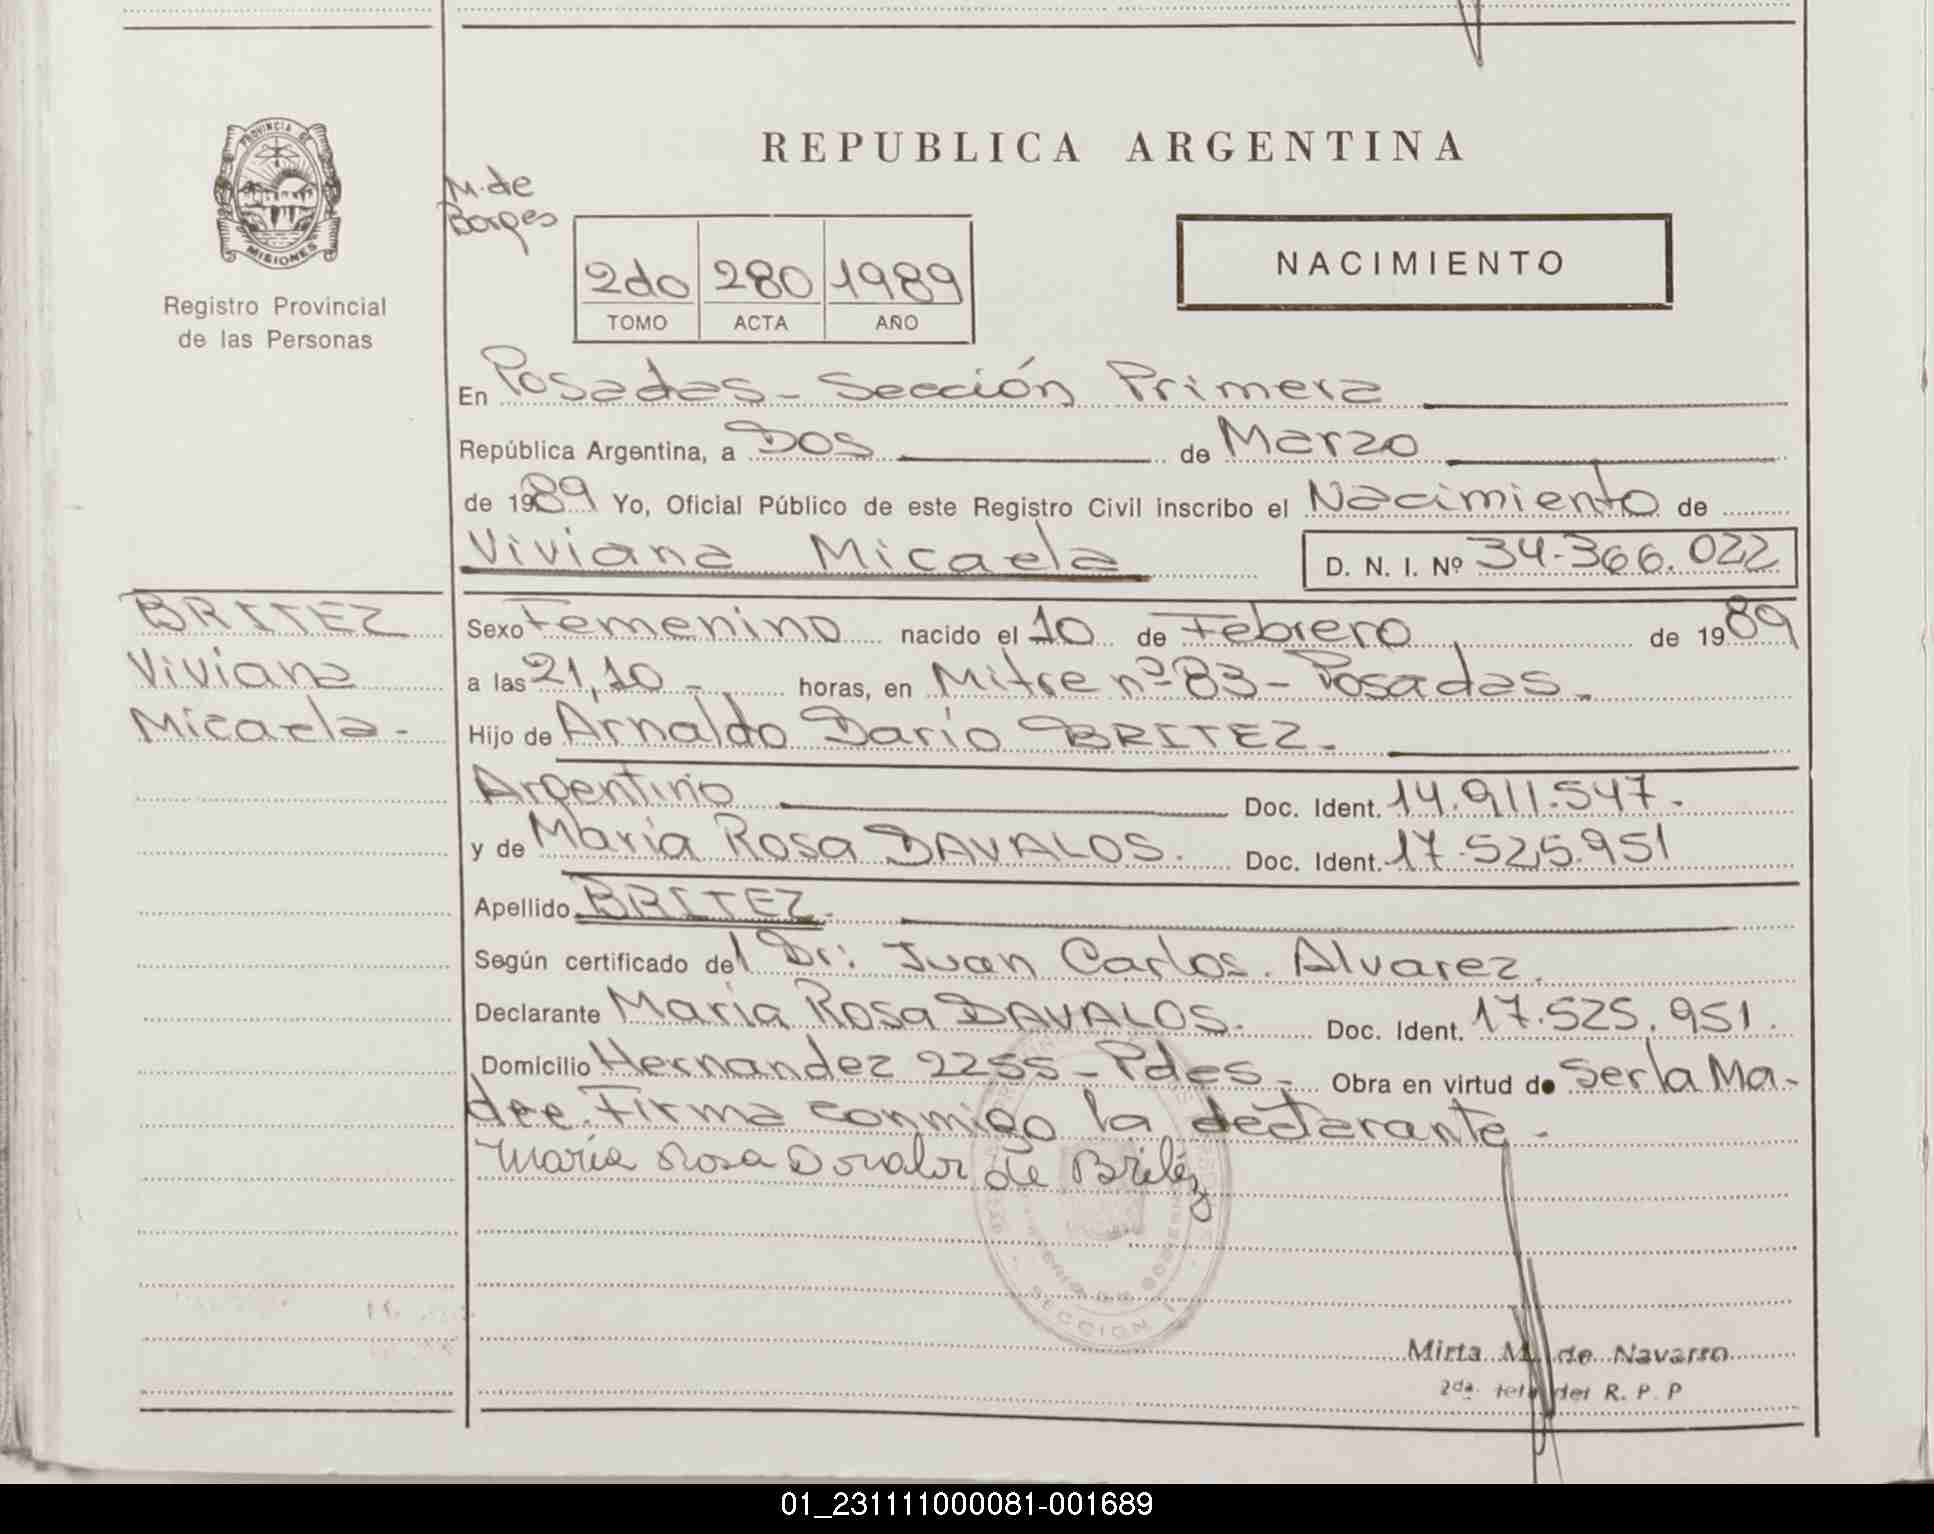 PROVINCIA DE
MISIONES
Registro Provincial
de las Personas
REPUBLICA ARGENTINA
M. de
Borges
2do 280 1989
TOMO ACTA AÑO
NACIMIENTO
En Posadas - Sección Primera
República Argentina, a Dos de Marzo
de 1989 Yo, Oficial Público de este Registro Civil inscribo el Nacimiento de
Viviana Micaela D. N. I. Nº 34-366.022
BRITEZ
Viviana
Micaela -
Sexo Femenino nacido el 10 de Febrero de 1989
a las 21,10 - horas, en Mitre nº 83 - Posadas.
Hijo de Arnaldo Dario BRITEZ.
Argentino Doc. Ident. 14.911.547.
y de María Rosa DAVALOS. Doc. Ident. 17.525.951
Apellido BRITEZ.
Según certificado del Dr: Juan Carlos Alvarez.
Declarante María Rosa DAVALOS. Doc. Ident. 17.525.951.
Domicilio Hernandez 2255 - Pdas - Obra en virtud de Ser la Ma-
dre. Firma conmigo la declarante -
María Rosa Davalos de Britez
SECCION 1
Mirta M. de Navarro
2da. Jefa del R. P. P
01_231111000081-001689